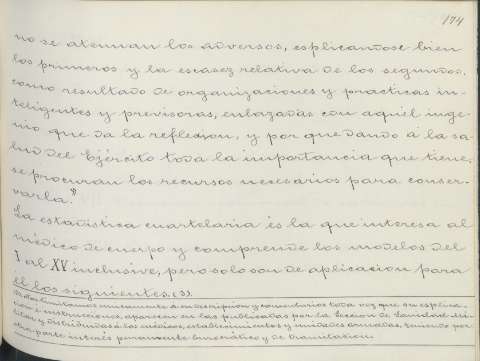 174
no se atenuan los adversos, esplicandose bien
los primeros y la escasez relativa de los segundos,
como resultado de organizaciones y practicas in-
teligentes y previsoras, enlazadas con aquél inge-
nio que da la reflexion, y por que dando á la sa-
lud del Ejército toda la importancia que tiene,
se procuran los recursos necesarios para conser-
varla."
La estadistica cuartelaria és la que interesa al
médico de cuerpo y comprende los modelos del
I al XV inclusive, pero solo son de aplicacion para
él los siguientes. (3).
limitamos unicamente á su descripcion y comentarios toda vez que su esplica-
cion é instrucciones, aparecen en las publicadas por la Seccion de Sanidad Mi-
litar y distribuidas á los médicos, establecimientos y unidades armadas, siendo por
otra parte interés puramente burocrático y de tramitacion.